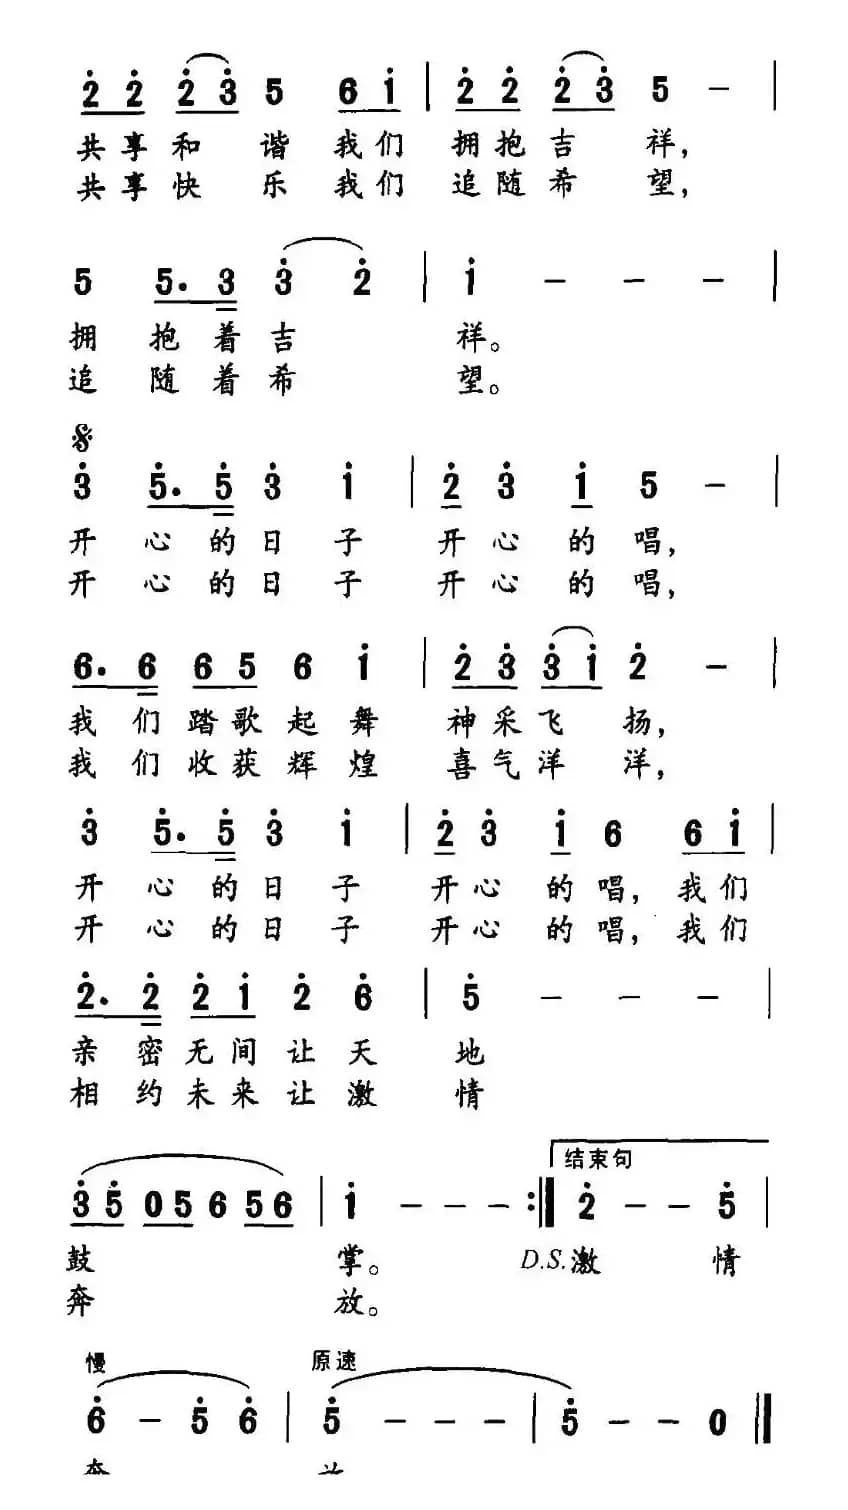 2 2 2 3 5 6 1 | 2 2 2 3 5 － |
共享和谐我们 拥抱吉祥，
共享快乐我们 追随希望，
5 5. 3 3 2 | 1 － － － |
拥抱着吉 祥。
追随着希 望。
3 5. 5 3 1 | 2 3 1 5 － |
开心的日子 开心的唱，
开心的日子 开心的唱，
6. 6 6 5 6 1 | 2 3 3 1 2 － |
我们踏歌起舞 神采飞扬，
我们收获辉煌 喜气洋洋，
3 5. 5 3 1 | 2 3 1 6 6 1 |
开心的日子 开心的唱，我们
开心的日子 开心的唱，我们
2. 2 2 1 2 6 | 5 － － － |
亲密无间让天 地
相约未来让激 情
结束句
3 5 0 5 6 5 6 | 1 － － － :‖ 2 － － 5 |
鼓 掌。 D.S.激 情
奔 放。
慢 原速
6 － 5 6 | 5 － － － | 5 － － 0 ‖